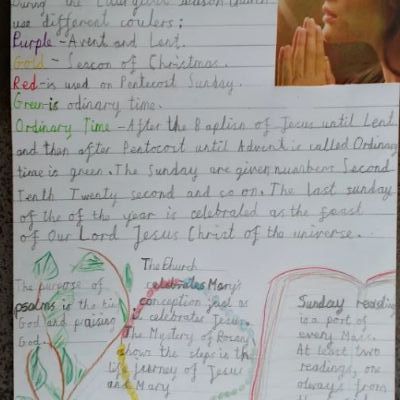 During the Liturgical season church
use different coulers;
Purple - Avent and Lent.
Gold - Seacon of Christmas.
Red - is used on Pentecost Sunday.
Green is odinary time.
Ordinary Time - After the Baptism of Jesus until Lent
and then after Pentocost until Advent is called Ordinary
time is green. The Sunday are given numbers Second
Tenth Twenty second and so on. The last sunday
of the of the year is celebrated as the feast
of Our Lord Jesus Christ of the universe.
The purpose of
psalms is the
God and praising
God.
The Church
celebrates Mary's
conception just as
it celebrates Jesus.
The Mystery of Rosary
shows the steps in the
life journey of Jesus
and Mary
Sunday reading
is a part of
every Mass.
At least two
readings, one
always from